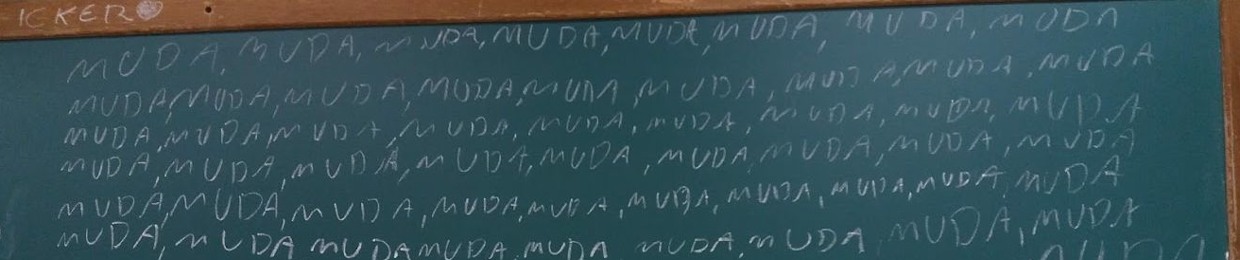 ICKER
MUDA, MUDA, MUDA, MUDA, MUDA, MUDA, MUDA, MUDA
MUDA, MUDA, MUDA, MUDA, MUDA, MUDA, MUDA, MUDA, MUDA
MUDA, MUDA, MUDA, MUDA, MUDA, MUDA, MUDA, MUDA, MUDA
MUDA, MUDA, MUDA, MUDA, MUDA, MUDA, MUDA, MUDA, MUDA
MUDA, MUDA, MUDA, MUDA, MUDA, MUDA, MUDA, MUDA, MUDA, MUDA
MUDA, MUDA MUDA MUDA, MUDA MUDA, MUDA MUDA, MUDA